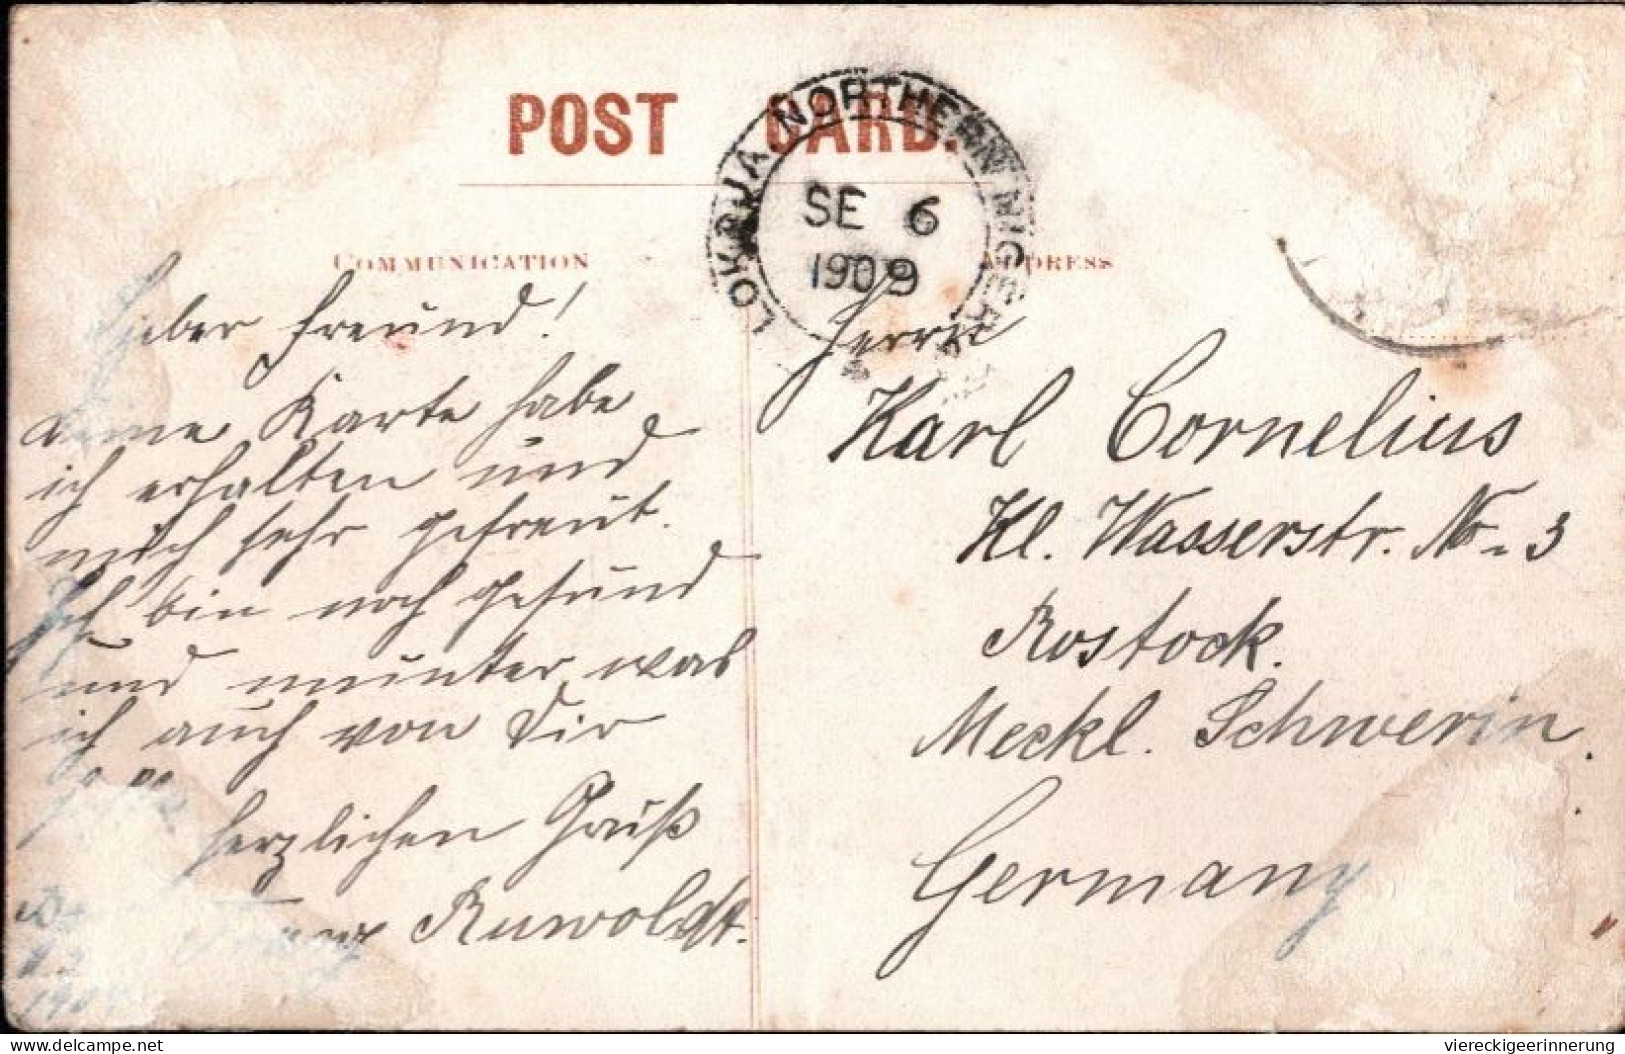 POST CARD.
LOKOJA NORTHERN NIGERIA
SE 6
1909
COMMUNICATION
ADDRESS
Lieber Freund!
deine Karte habe
ich erhalten und
mich sehr gefreut.
Ich bin noch gesund
und munter, was
ich auch von Dir
hoffe
herzlichen Gruß
Ruwoldt.
1909
Herrn
Karl Cornelius
Kl. Wasserstr. No. 3
Rostock.
Meckl. Schwerin.
Germany
delcampe.net
viereckigeerinnerung